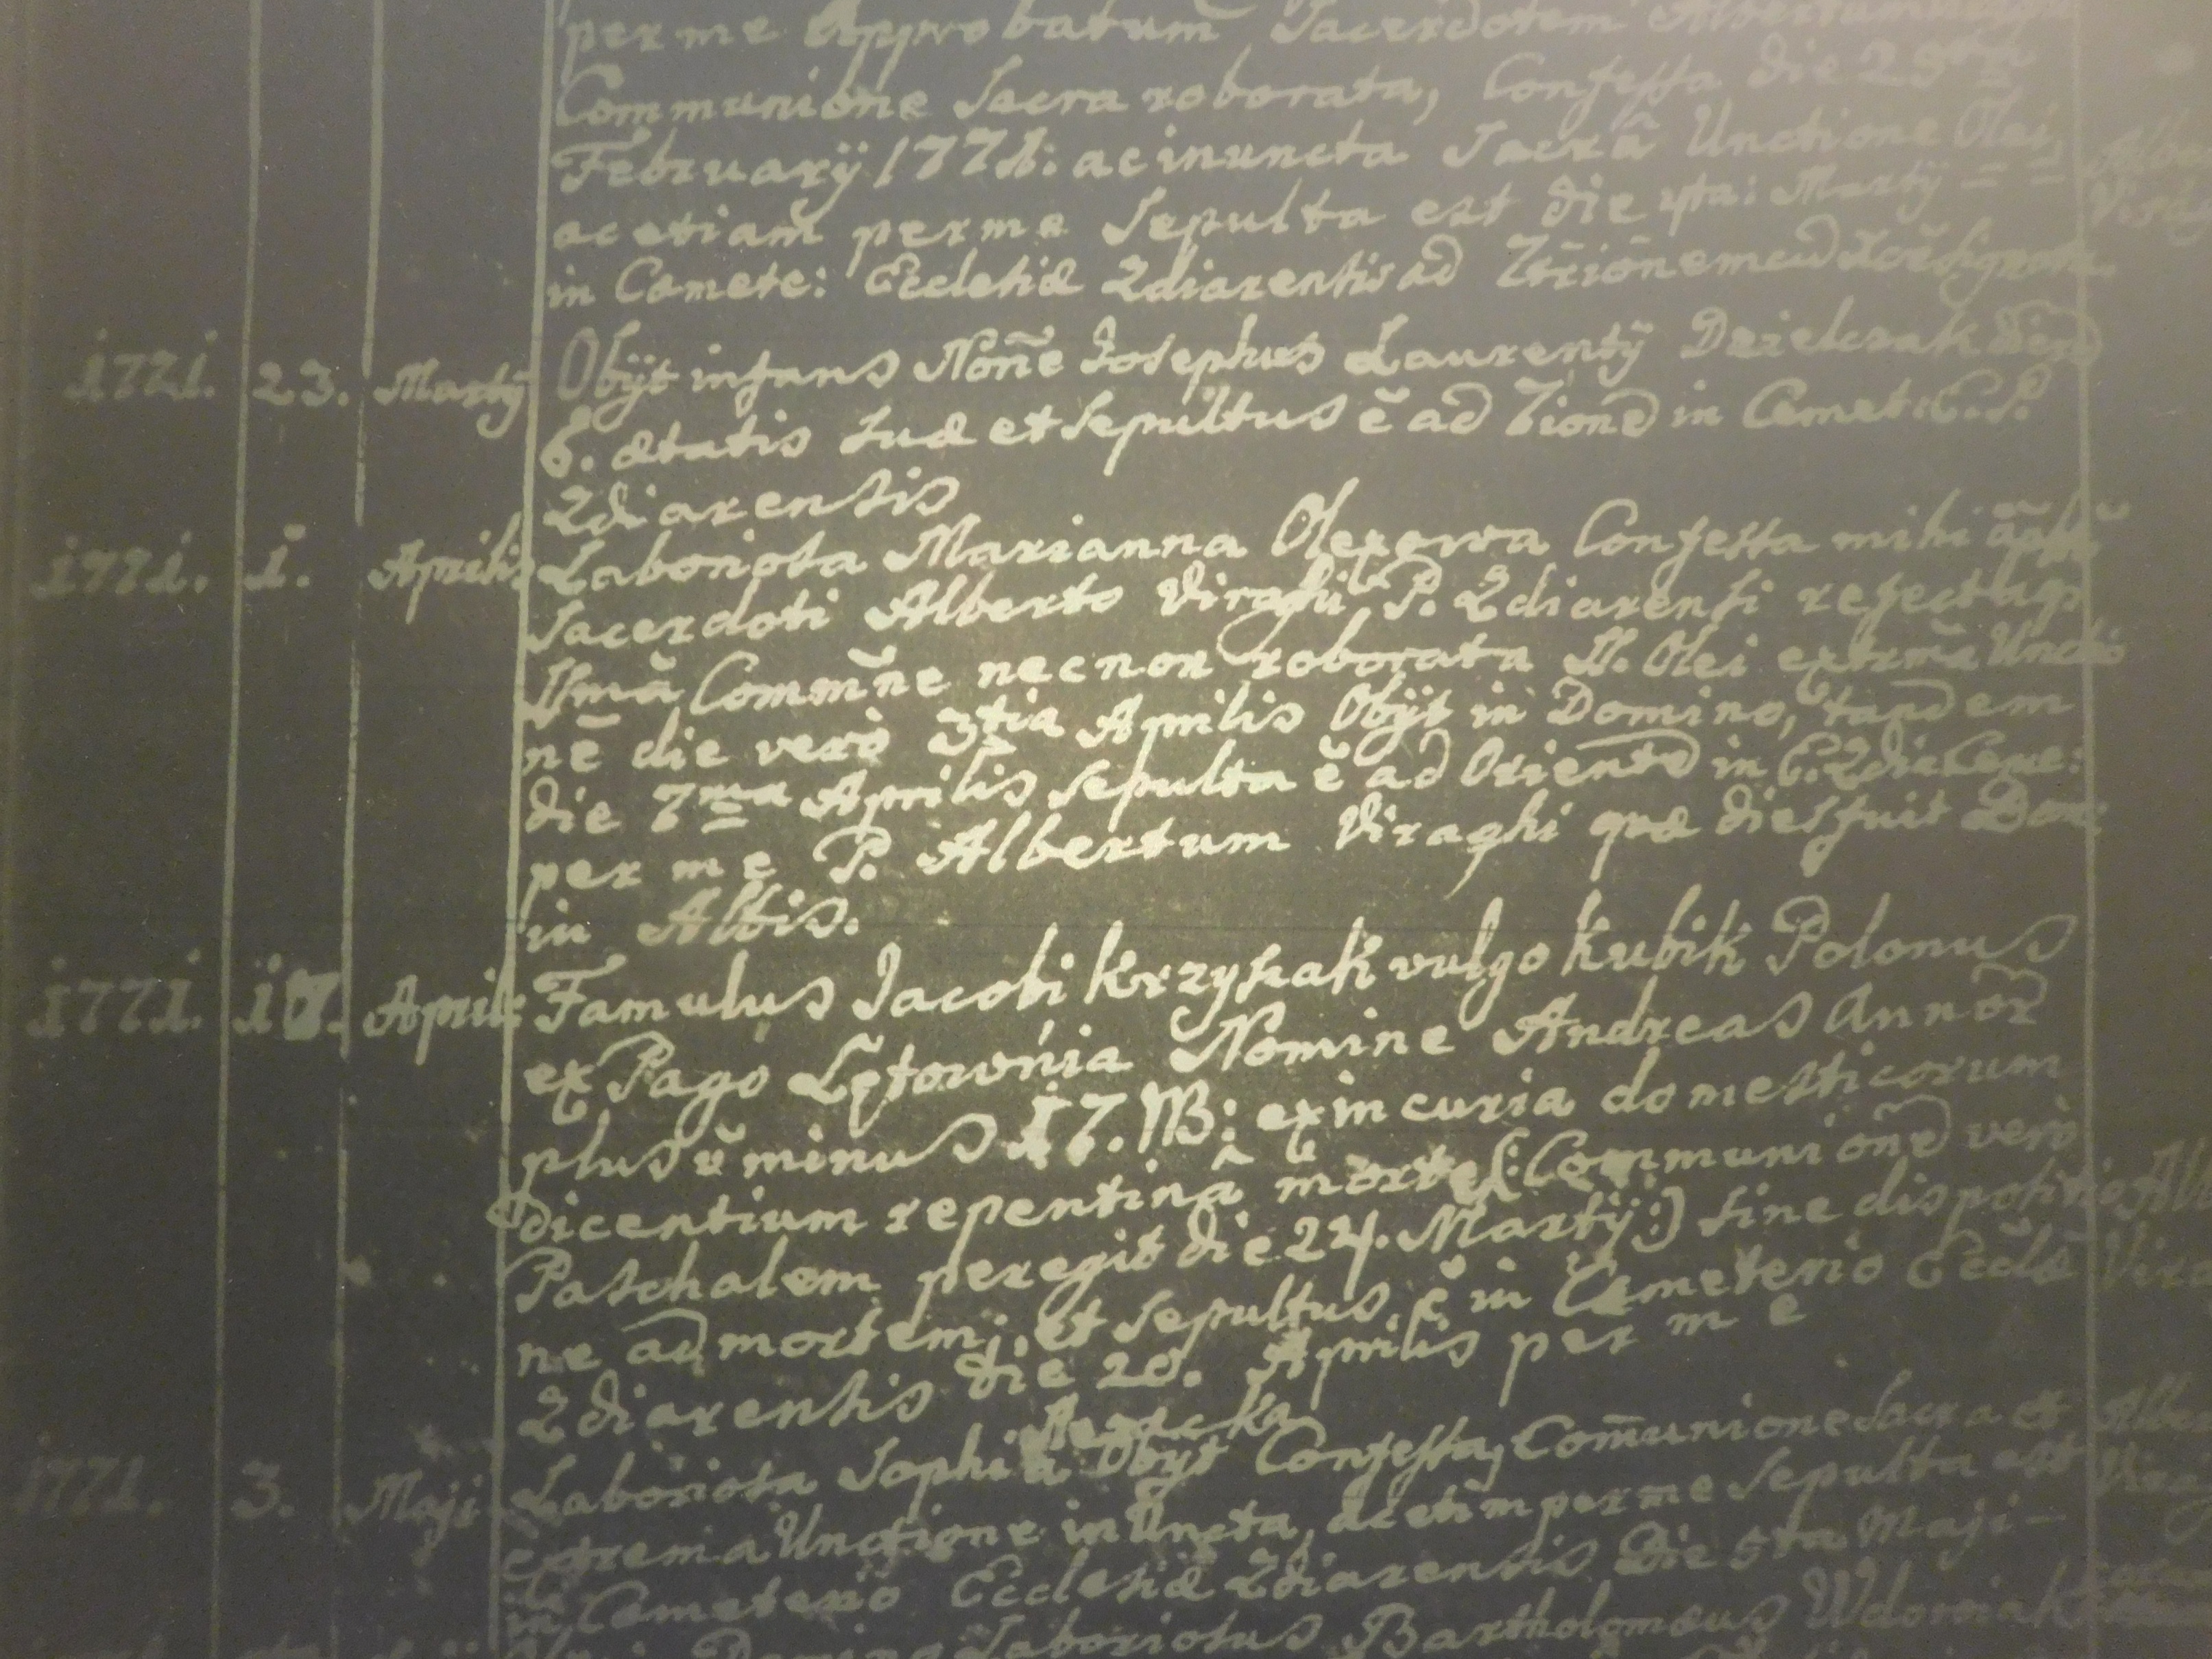 per me Approbatum Sacerdotem Albertum
Communione Sacra roborata, Confessa die 29
Februarÿ 1771: ac inuncta Sacrâ Unctione Olei,
ac etiam per me Sepulta est die 4ta: Martÿ = =
in Cemete: Ecclesiæ Zdiarensis ad
1771. 23. Martÿ Obÿt infans Noñe Josephus Laurentÿ Dzielczak
6. ætatis suæ et sepultus ẽ ad in Cemet: E. P.
Zdiarensis
1771. 1. Aprilis Laboriosa Marianna Olexowa Confessa mihi
Sacerdoti Alberto Viraghi P. Zdiarensi refectaq
Ssmã Commñe nec non roborata SS. Olei extrma Unctio
nẽ die verò 3tia Aprilis Obÿt in Domino, tandem
die 7ma Aprilis sepulta ẽ ad Orientẽ in E. Zdia Ceme:
per me P. Albertum Viraghi quæ dies fuit Dom:
in Albis.
1771. 17. Aprilis Famulus Jacobi Krzysiak vulgo Kubik Polonus
ex Pago Łętownia Nomine Andreas Annor
plus ũ minus 17. NB: ex in curia domesticorum
dicentium repentinâ morte (: Communionẽ verò
Paschalem peregit die 24. Martÿ :) sine dispositio
ne ad mortem, et sepultus ẽ in Cemeterio Eccłæ
Zdiarensis die 20. Aprilis per me
1771. 3. Maji Laboriosa Sophia Obÿt Confessa, Com̃unione Sacra et
extrema Unctione inUncta, ac etim per me Sepulta est
in Cemeterio Ecclesiæ Zdiarensis Die 5ta Maji -
Laboriosus Bartholomæus Wdowiak